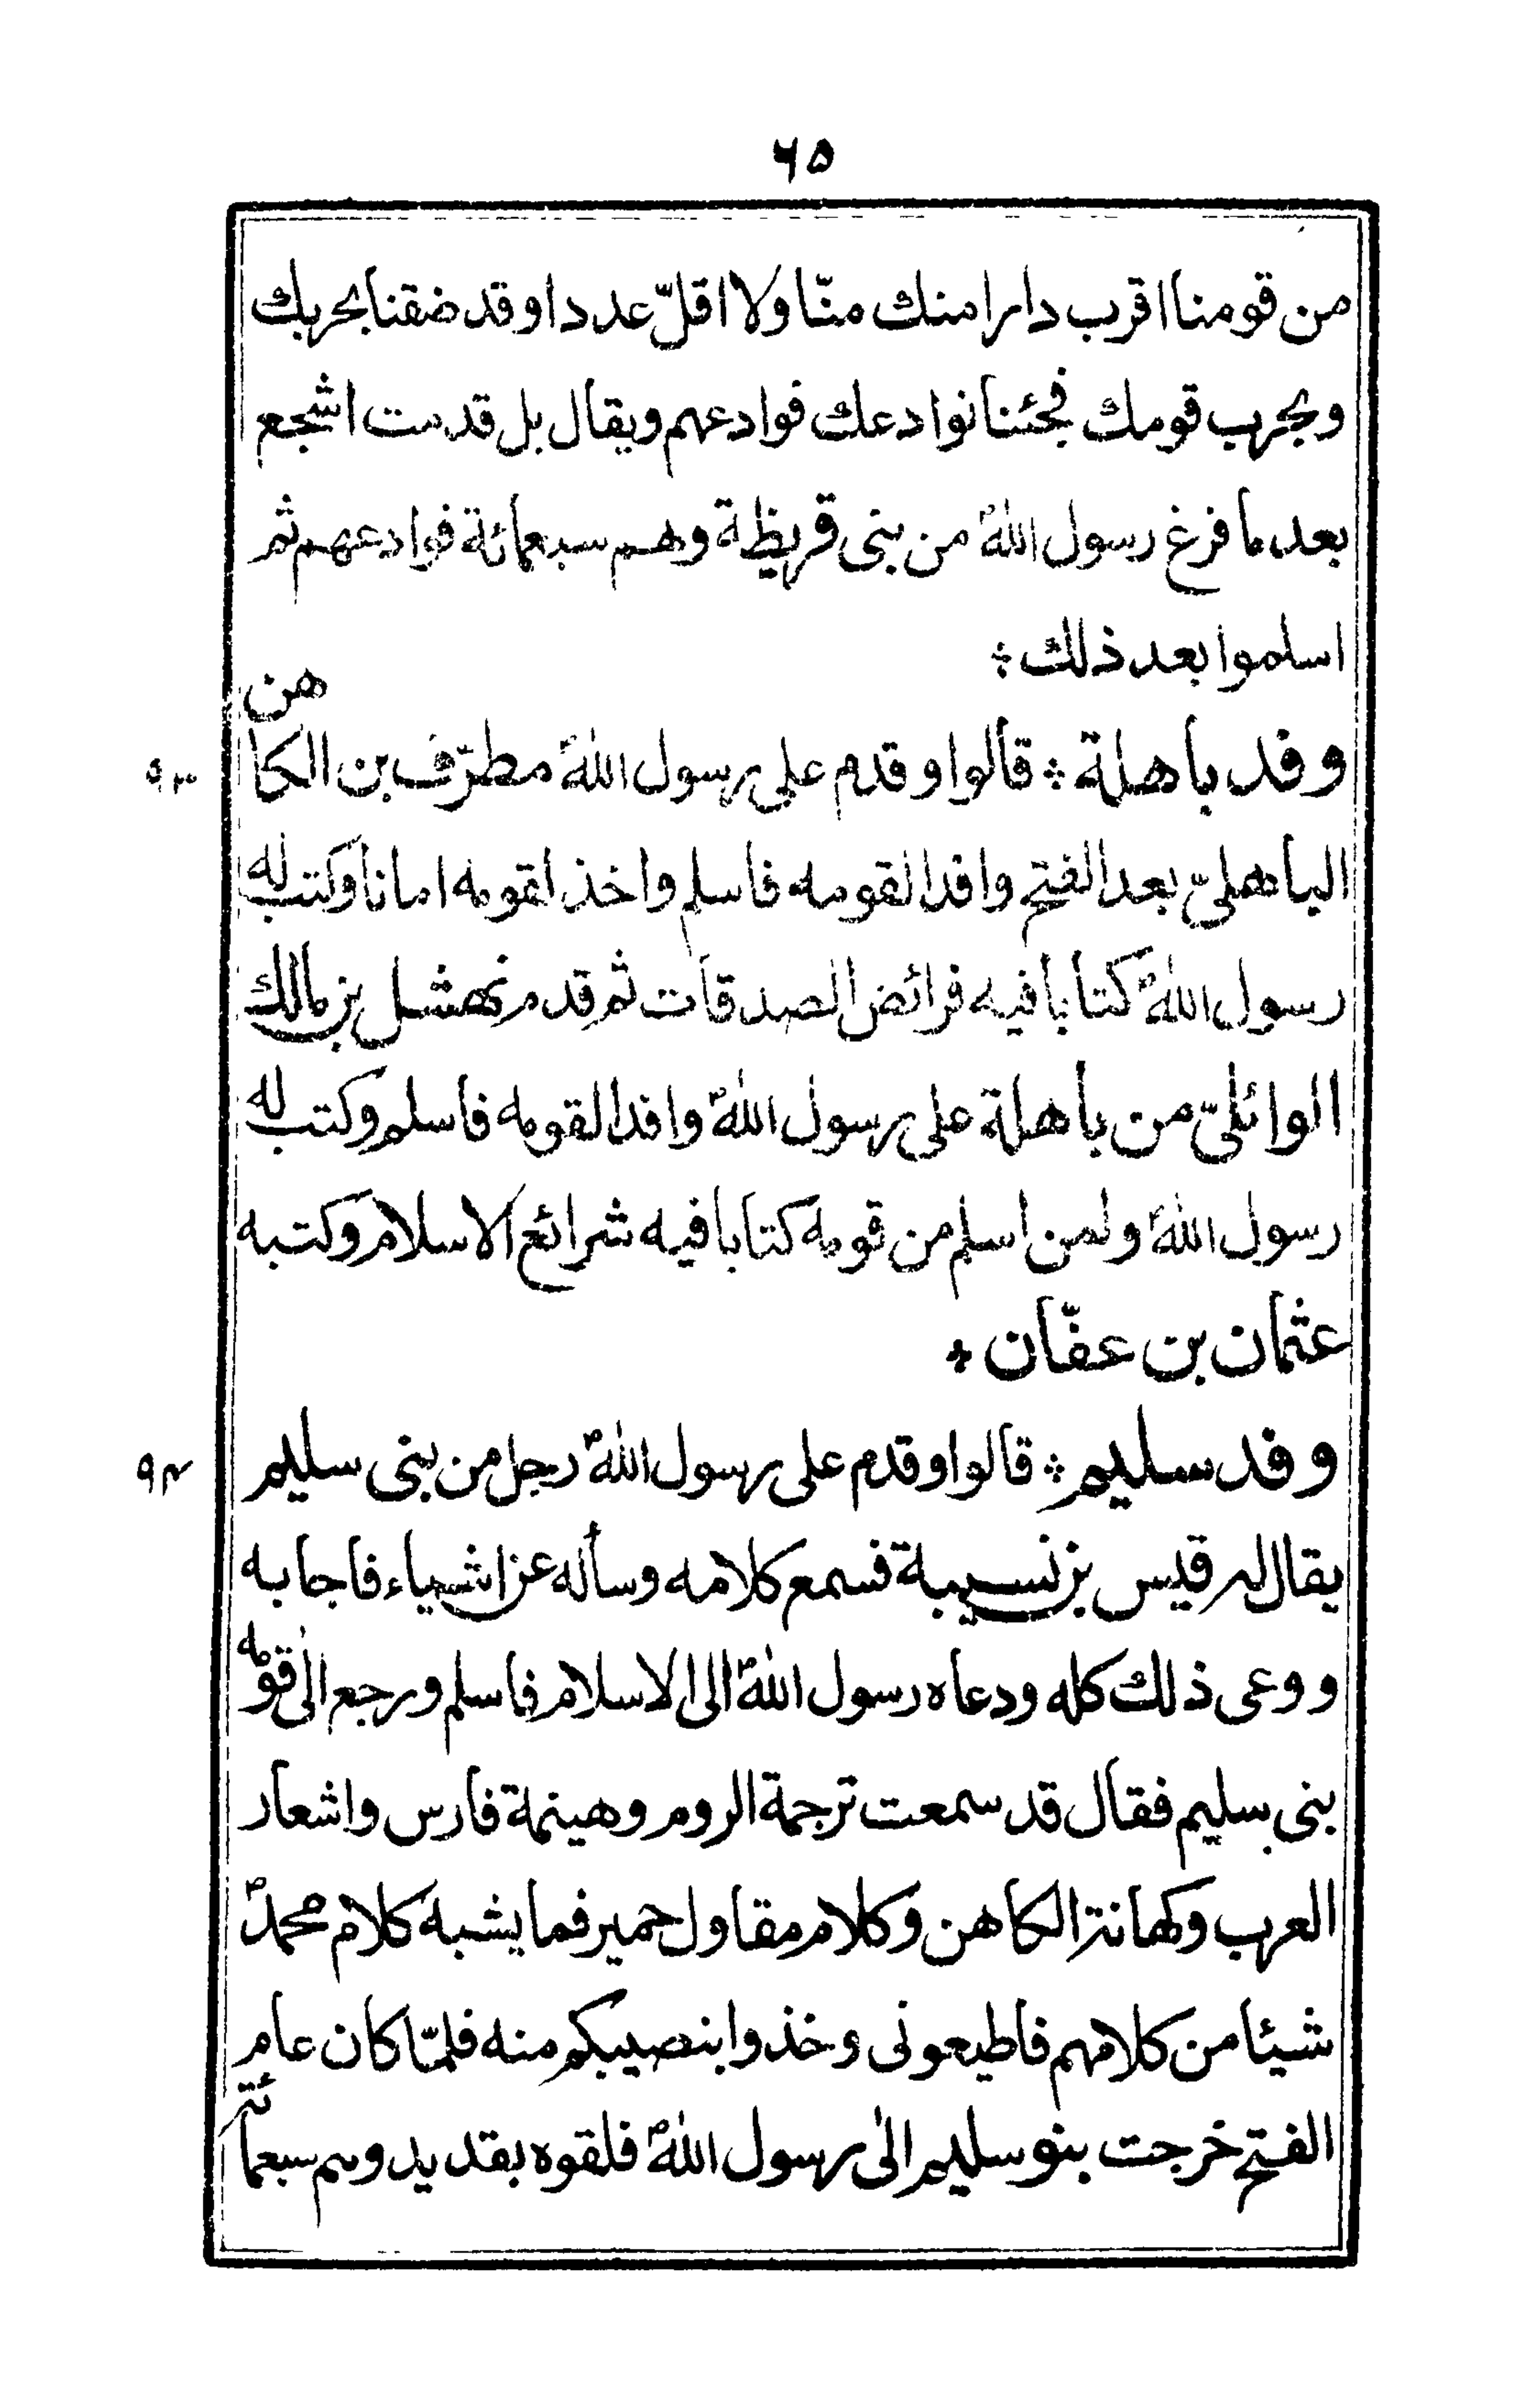 ٦٥
من قومنا اقرب دارا منك منّا ولا اقلّ عددا وقد ضقنا بحربك
وبحرب قومك فجئنا نوادعك فوادعهم ويقال بل قدمت اشجع
بعد ما فرغ رسول اللهؐ من بنى قريظة وهم سبعمائة فوادعهم ثم
اسلموا بعد ذلك ؞
٩٣ وفد باهلة ؞ قالوا وقدم على رسول اللهؐ مطرّف بن الكاهن
الباهلىّ بعد الفتح وافدا لقومه فاسلم واخذ لقومه امانا وكتب له
رسول اللهؐ كتابا فيه فرائض الصدقات ثم قدم نهشل بن مالك
الوائلىّ من باهلة على رسول اللهؐ وافدا لقومه فاسلم وكتب له
رسول اللهؐ ولمن اسلم من قومه كتابا فيه شرائع الاسلام وكتبه
عثمان بن عفّان ؞
٩٤ وفد سليم ؞ قالوا وقدم على رسول اللهؐ رجل من بنى سليم
يقال له قيس بن نسيبة فسمع كلامه وسأله عن اشياء فاجابه
ووعى ذلك كله ودعاه رسول اللهؐ الى الاسلام فاسلم ورجع الىٰ قومه
بنى سليم فقال قد سمعت ترجمة الروم وهينمة فارس واشعار
العرب وكهانة الكاهن وكلام مقاول حمير فما يشبه كلام محمدؐ
شيئا من كلامهم فاطيعونى وخذوا بنصيبكم منه فلمّا كان عام
الفتح خرجت بنو سليم الىٰ رسول اللهؐ فلقوه بقديد وهم سبعمائة